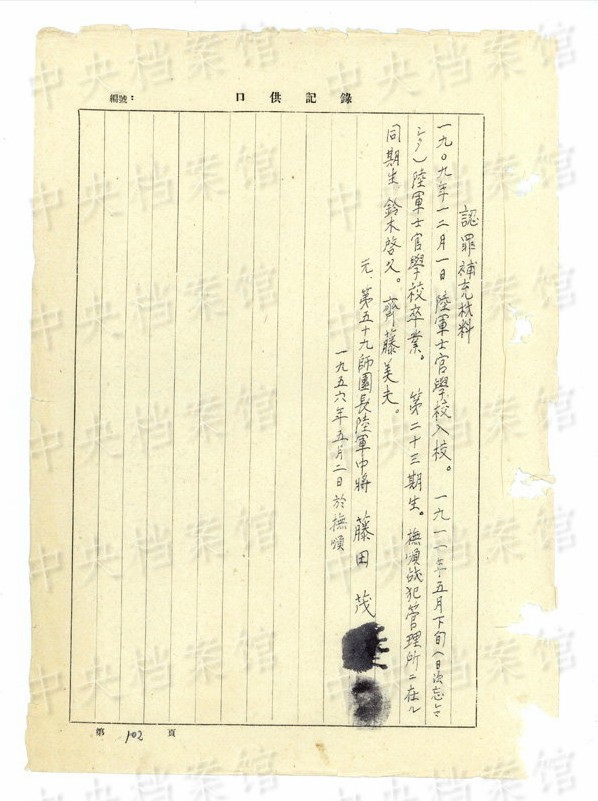 編號：
口供記錄
認罪補充材料
一九〇九年一二月一日 陸軍士官學校入校。 一九一一年五月下旬（日次忘レマシタ）陸軍士官學校卒業。 第二十三期生。 撫順战犯管理所ニ在ル
同期生 鈴木啓久。齊藤美夫。
元、第五十九師團長陸軍中將 藤田 茂
一九五六年五月二日於撫順
第 102 頁
中央档案馆